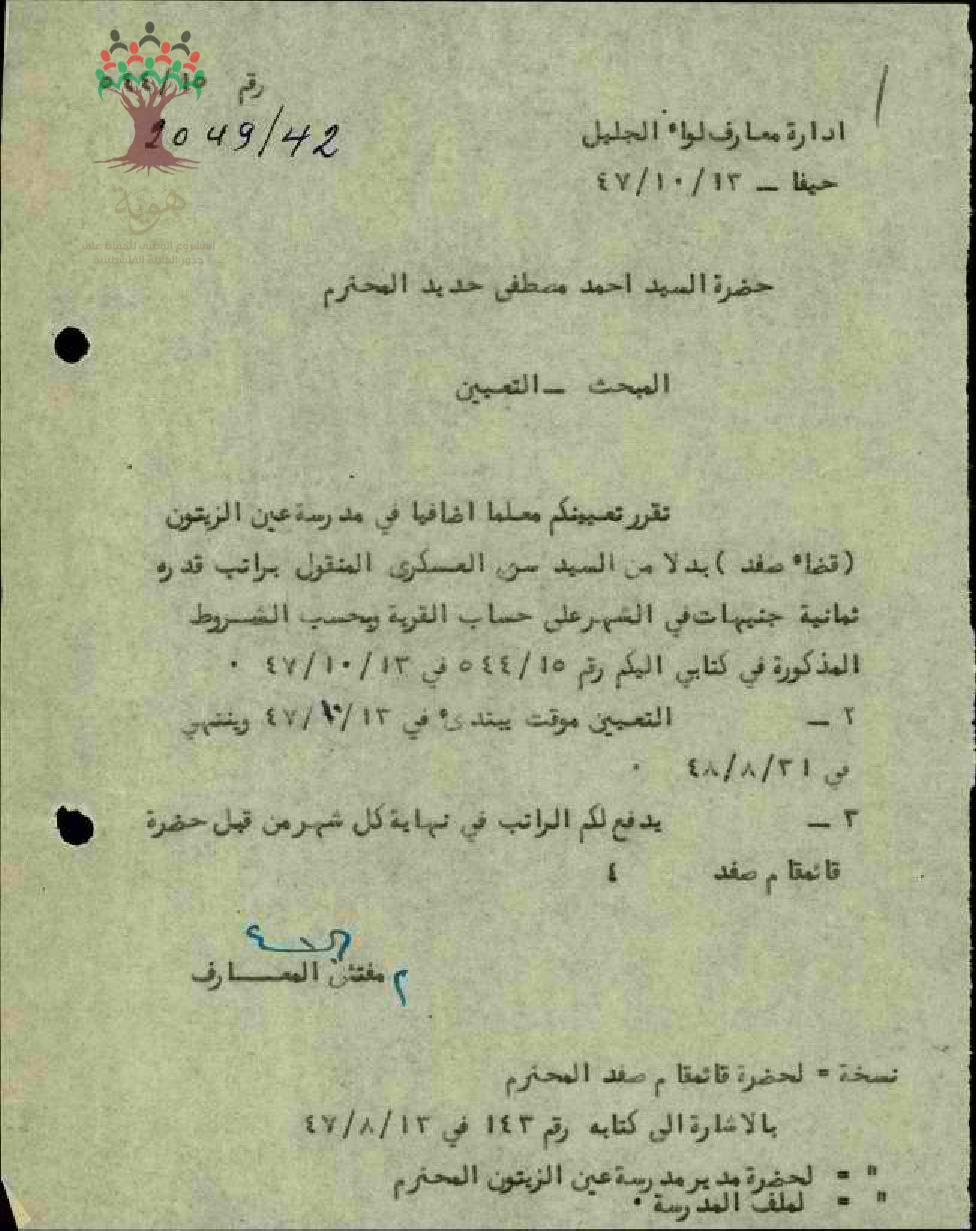 رقم ٥٤٤/١٥
2049/42
ادارة معارف لواء الجليل
حيفا – ٤٧/١٠/١٣
هوية
المشروع الوطني للحفاظ على
جذور العائلة الفلسطينية
حضرة السيد احمد مصطفى حديد المحترم
المبحث – التعيين
تقرر تعيينكم معلما اضافيا في مدرسة عين الزيتون
(قضاء صفد) بدلا من السيد العسكري المنقول براتب قدره
ثمانية جنيهات في الشهر على حساب القرية وبحسب الشروط
المذكورة في كتابي اليكم رقم ٥٤٤/١٥ في ٤٧/١٠/١٣ ٠
٢ – التعيين موقت يبتدىء في ٤٧/١٠/١٣ وينتهي
في ٤٨/٨/٣١ ٠
٣ – يدفع لكم الراتب في نهاية كل شهر من قبل حضرة
قائمقام صفد ٤
مفتش المعارف
نسخة = لحضرة قائمقام صفد المحترم
بالاشارة الى كتابه رقم ١٤٣ في ٤٧/٨/١٣
" = لحضرة مدير مدرسة عين الزيتون المحترم
" = لملف المدرسة ٠